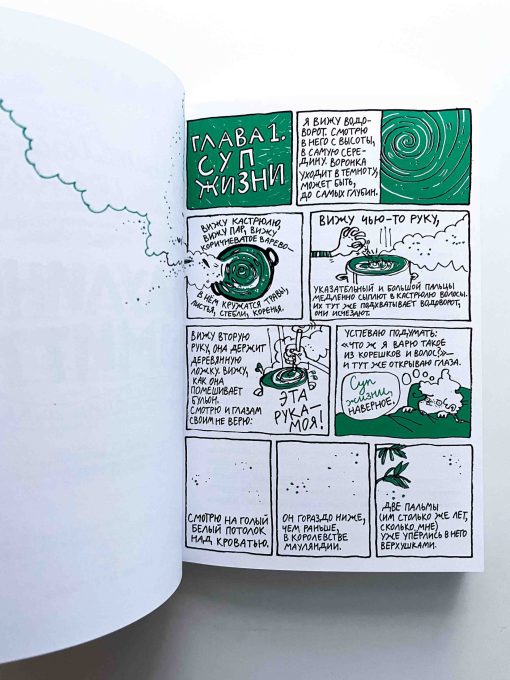 ГЛАВА 1.
СУП
ЖИЗНИ
Я ВИЖУ ВОДО-
ВОРОТ. СМОТРЮ
В НЕГО С ВЫСОТЫ,
В САМУЮ СЕРЕ-
ДИНУ. ВОРОНКА
УХОДИТ В ТЕМНОТУ,
МОЖЕТ БЫТЬ,
ДО САМЫХ ГЛУБИН.
ВИЖУ КАСТРЮЛЮ,
ВИЖУ ПАР, ВИЖУ
КОРИЧНЕВАТОЕ ВАРЕВО –
В НЁМ КРУЖАТСЯ ТРАВЫ,
ЛИСТЬЯ, СТЕБЛИ, КОРЕНЬЯ.
ВИЖУ ЧЬЮ-ТО РУКУ,
УКАЗАТЕЛЬНЫЙ И БОЛЬШОЙ ПАЛЬЦЫ
МЕДЛЕННО СЫПЛЮТ В КАСТРЮЛЮ ВОЛОСЫ.
ИХ ТУТ ЖЕ ПОДХВАТЫВАЕТ ВОДОВОРОТ,
ОНИ ИСЧЕЗАЮТ.
ВИЖУ ВТОРУЮ
РУКУ, ОНА ДЕРЖИТ
ДЕРЕВЯННУЮ
ЛОЖКУ. ВИЖУ,
КАК ОНА
ПОМЕШИВАЕТ
БУЛЬОН.
СМОТРЮ И ГЛАЗАМ
СВОИМ НЕ ВЕРЮ:
ЭТА
РУКА –
МОЯ!
УСПЕВАЮ ПОДУМАТЬ:
«ЧТО Ж Я ВАРЮ ТАКОЕ
ИЗ КОРЕШКОВ И ВОЛОС?» –
И ТУТ ЖЕ ОТКРЫВАЮ ГЛАЗА.
Суп
жизни,
НАВЕРНОЕ.
СМОТРЮ НА ГОЛЫЙ
БЕЛЫЙ ПОТОЛОК
НАД КРОВАТЬЮ.
ОН ГОРАЗДО НИЖЕ,
ЧЕМ РАНЬШЕ,
В КОРОЛЕВСТВЕ
МАУЛЯНДИИ.
ДВЕ ПАЛЬМЫ
(ИМ СТОЛЬКО ЖЕ ЛЕТ,
СКОЛЬКО МНЕ)
УЖЕ УПЁРЛИСЬ В НЕГО
ВЕРХУШКАМИ.